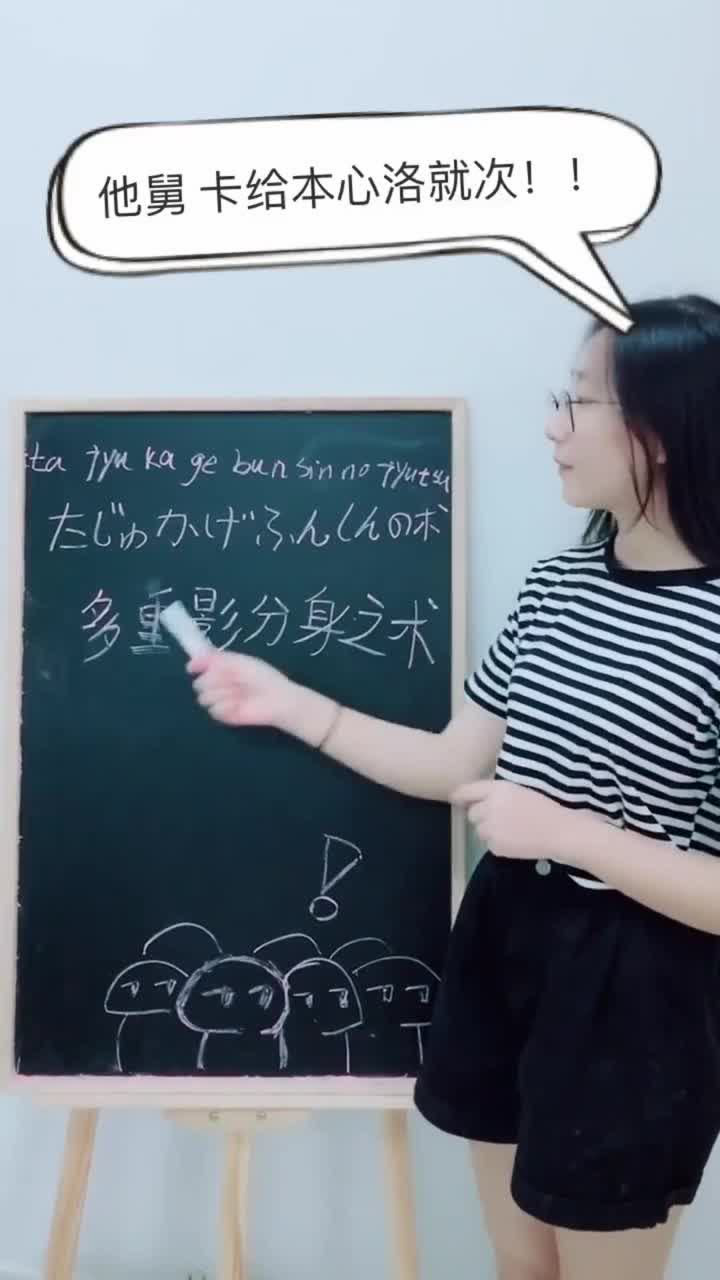 他舅 卡给本心洛就次！！
ta jyu ka ge bun sin no jyutsu
たじゅかげふんしんの术
多重影分身之术
!